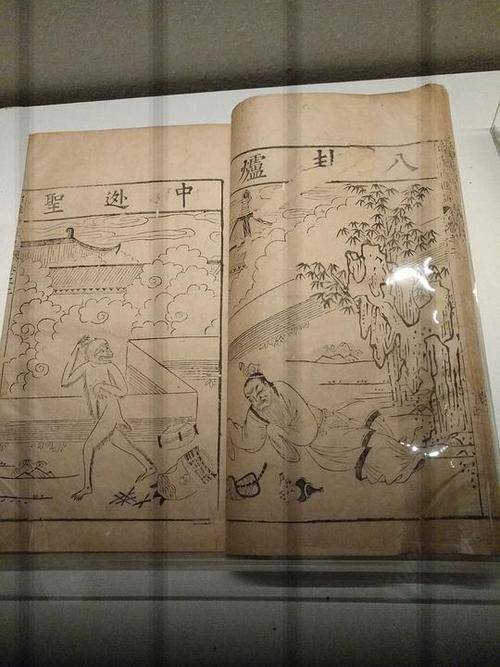 八卦爐
中迯聖